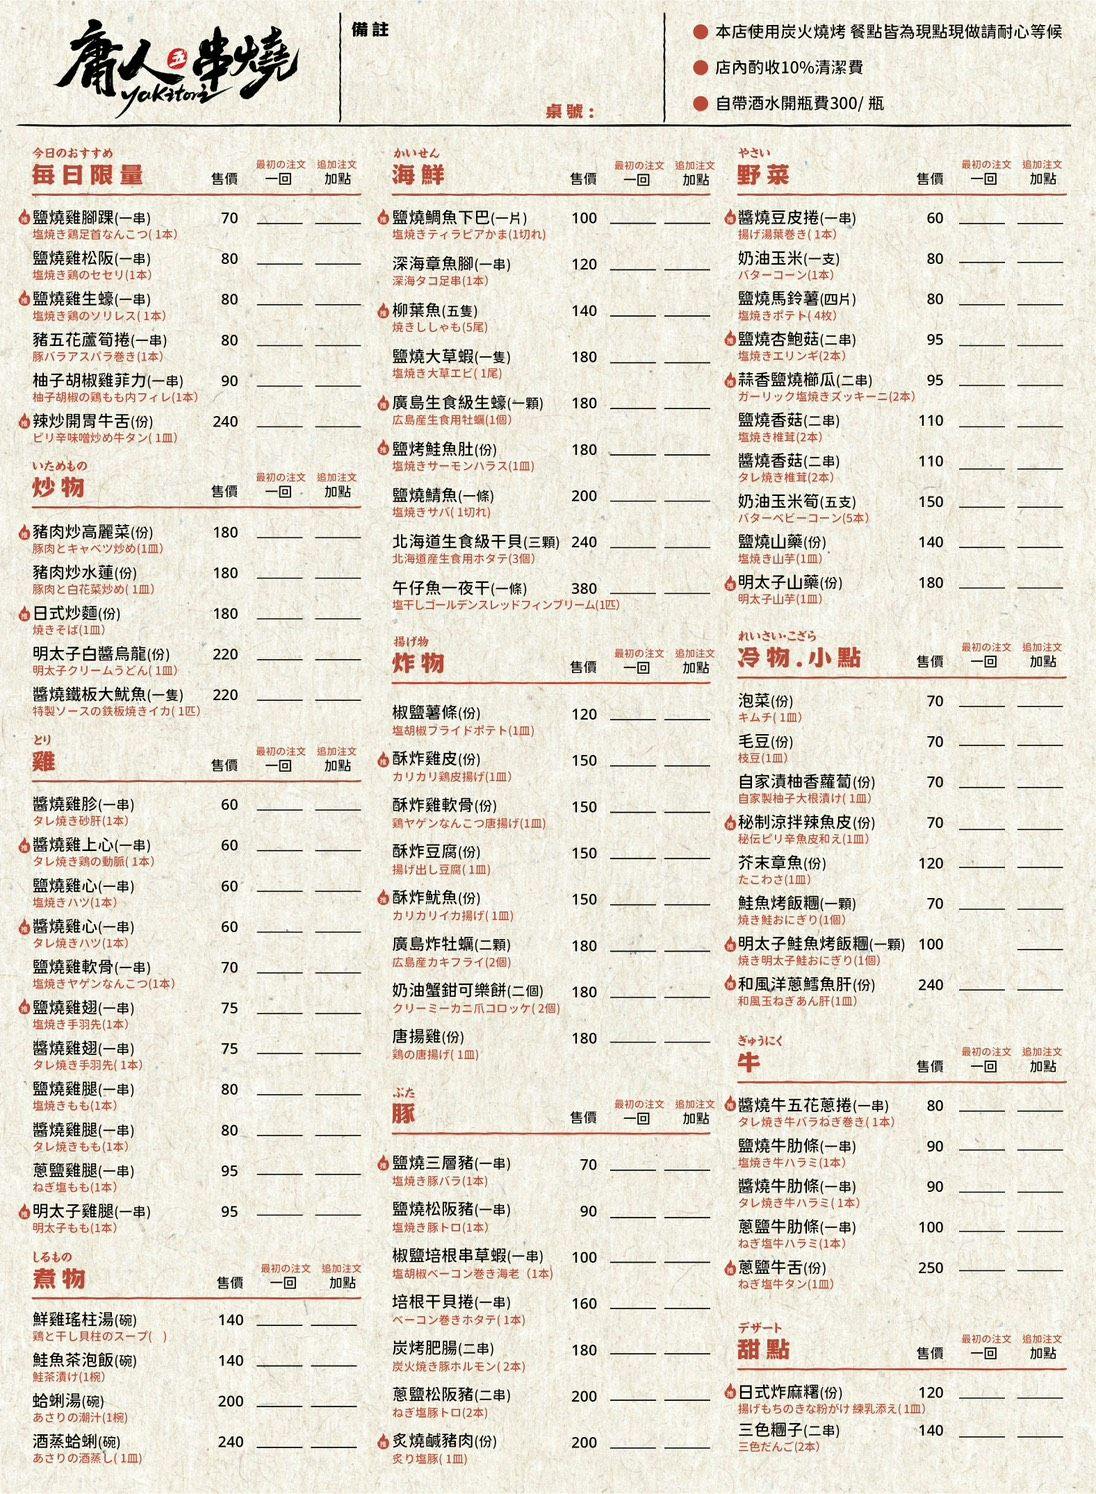 庸人五串燒
yakitori
備註
桌號：
本店使用炭火燒烤 餐點皆為現點現做請耐心等候
店內酌收10%清潔費
自帶酒水開瓶費300/ 瓶
今日のおすすめ
每日限量 售價 最初の注文 一回 追加注文 加點
鹽燒雞腳踝(一串) 70
塩焼き鶏足首なんこつ( 1本)
鹽燒雞松阪(一串) 80
塩焼き鶏のセセリ(1本)
鹽燒雞生蠔(一串) 80
塩焼き鶏のソリレス( 1本)
豬五花蘆筍捲(一串) 80
豚バラアスパラ巻き(1本)
柚子胡椒雞菲力(一串) 90
柚子胡椒の鶏もも内フィレ(1本)
辣炒開胃牛舌(份) 240
ピリ辛味噌炒め牛タン( 1皿)
いためもの
炒物 售價 最初の注文 一回 追加注文 加點
豬肉炒高麗菜(份) 180
豚肉とキャベツ炒め(1皿)
豬肉炒水蓮(份) 180
豚肉と白花菜炒め( 1皿)
日式炒麵(份) 180
焼きそば(1皿)
明太子白醬烏龍(份) 220
明太子クリームうどん( 1皿)
醬燒鐵板大魷魚(一隻) 220
特製ソースの鉄板焼きイカ( 1匹)
とり
雞 售價 最初の注文 一回 追加注文 加點
醬燒雞胗(一串) 60
タレ焼き砂肝(1本)
醬燒雞上心(一串) 60
タレ焼き鶏の動脈( 1本)
鹽燒雞心(一串) 60
塩焼きハツ(1本)
醬燒雞心(一串) 60
タレ焼きハツ(1本)
鹽燒雞軟骨(一串) 70
塩焼きヤゲンなんこつ(1本)
鹽燒雞翅(一串) 75
塩焼き手羽先(1本)
醬燒雞翅(一串) 75
タレ焼き手羽先( 1本)
鹽燒雞腿(一串) 80
塩焼きもも(1本)
醬燒雞腿(一串) 80
タレ焼きもも(1本)
蔥鹽雞腿(一串) 95
ねぎ塩もも(1本)
明太子雞腿(一串) 95
明太子もも(1本)
しるもの
煮物 售價 最初の注文 一回 追加注文 加點
鮮雞瑤柱湯(碗) 140
鶏と干し貝柱のスープ( )
鮭魚茶泡飯(碗) 140
鮭茶漬け(1椀)
蛤蜊湯(碗) 200
あさりの潮汁(1椀)
酒蒸蛤蜊(碗) 240
あさりの酒蒸し( 1皿)
かいせん
海鮮 售價 最初の注文 一回 追加注文 加點
鹽燒鯛魚下巴(一片) 100
塩焼きティラピアかま(1切れ)
深海章魚腳(一串) 120
深海タコ足串(1本)
柳葉魚(五隻) 140
焼きししゃも(5尾)
鹽燒大草蝦(一隻) 180
塩焼き大草エビ( 1尾)
廣島生食級生蠔(一顆) 180
広島産生食用牡蠣(1個)
鹽烤鮭魚肚(份) 180
塩焼きサーモンハラス(1皿)
鹽燒鯖魚(一條) 200
塩焼きサバ( 1切れ)
北海道生食級干貝(三顆) 240
北海道産生食用ホタテ(3個)
午仔魚一夜干(一條) 380
塩干しゴールデンスレッドフィンブリーム(1匹)
揚げ物
炸物 售價 最初の注文 一回 追加注文 加點
椒鹽薯條(份) 120
塩胡椒フライドポテト(1皿)
酥炸雞皮(份) 150
カリカリ鶏皮揚げ(1皿)
酥炸雞軟骨(份) 150
鶏ヤゲンなんこつ唐揚げ(1皿)
酥炸豆腐(份) 150
揚げ出し豆腐( 1皿)
酥炸魷魚(份) 150
カリカリイカ揚げ( 1皿)
廣島炸牡蠣(二顆) 180
広島産カキフライ(2個)
奶油蟹鉗可樂餅(二個) 180
クリーミーカニ爪コロッケ( 2個)
唐揚雞(份) 180
鶏の唐揚げ( 1皿)
ぶた
豚 售價 最初の注文 一回 追加注文 加點
鹽燒三層豬(一串) 70
塩焼き豚バラ(1本)
鹽燒松阪豬(一串) 90
塩焼き豚トロ(1本)
椒鹽培根串草蝦(一串) 100
塩胡椒ベーコン巻き海老（1本)
培根干貝捲(一串) 160
ベーコン巻きホタテ( 1本)
炭烤肥腸(二串) 180
炭火焼き豚ホルモン( 2本)
蔥鹽松阪豬(二串) 200
ねぎ塩豚トロ(2本)
炙燒鹹豬肉(份) 200
炙り塩豚( 1皿)
やさい
野菜 售價 最初の注文 一回 追加注文 加點
醬燒豆皮捲(一串) 60
揚げ湯葉巻き( 1本)
奶油玉米(一支) 80
バターコーン(1本)
鹽燒馬鈴薯(四片) 80
塩焼きポテト( 4枚)
鹽燒杏鮑菇(二串) 95
塩焼きエリンギ(2本)
蒜香鹽燒櫛瓜(二串) 95
ガーリック塩焼きズッキーニ(2本)
鹽燒香菇(二串) 110
塩焼き椎茸(2本)
醬燒香菇(二串) 110
タレ焼き椎茸(2本)
奶油玉米筍(五支) 150
バターベビーコーン(5本)
鹽燒山藥(份) 140
塩焼き山芋(1皿)
明太子山藥(份) 180
明太子山芋(1皿)
れいさい・こざら
冷物.小點 售價 最初の注文 一回 追加注文 加點
泡菜(份) 70
キムチ( 1皿)
毛豆(份) 70
枝豆(1皿)
自家漬柚香蘿蔔(份) 70
自家製柚子大根漬け( 1皿)
秘制涼拌辣魚皮(份) 70
秘伝ピリ辛魚皮和え(1皿)
芥末章魚(份) 120
たこわさ(1皿)
鮭魚烤飯糰(一顆) 70
焼き鮭おにぎり(1個)
明太子鮭魚烤飯糰(一顆) 100
焼き明太子鮭おにぎり(1個)
和風洋蔥鱈魚肝(份) 240
和風玉ねぎあん肝(1皿)
ぎゅうにく
牛 售價 最初の注文 一回 追加注文 加點
醬燒牛五花蔥捲(一串) 80
タレ焼き牛バラねぎ巻き( 1本)
鹽燒牛肋條(一串) 90
塩焼き牛ハラミ(1本)
醬燒牛肋條(一串) 90
タレ焼き牛ハラミ( 1本)
蔥鹽牛肋條(一串) 100
ねぎ塩牛ハラミ(1本)
蔥鹽牛舌(份) 250
ねぎ塩牛タン(1皿)
デザート
甜點 售價 最初の注文 一回 追加注文 加點
日式炸麻糬(份) 120
揚げもちのきな粉がけ 練乳添え( 1皿)
三色糰子(二串) 140
三色だんご(2本)